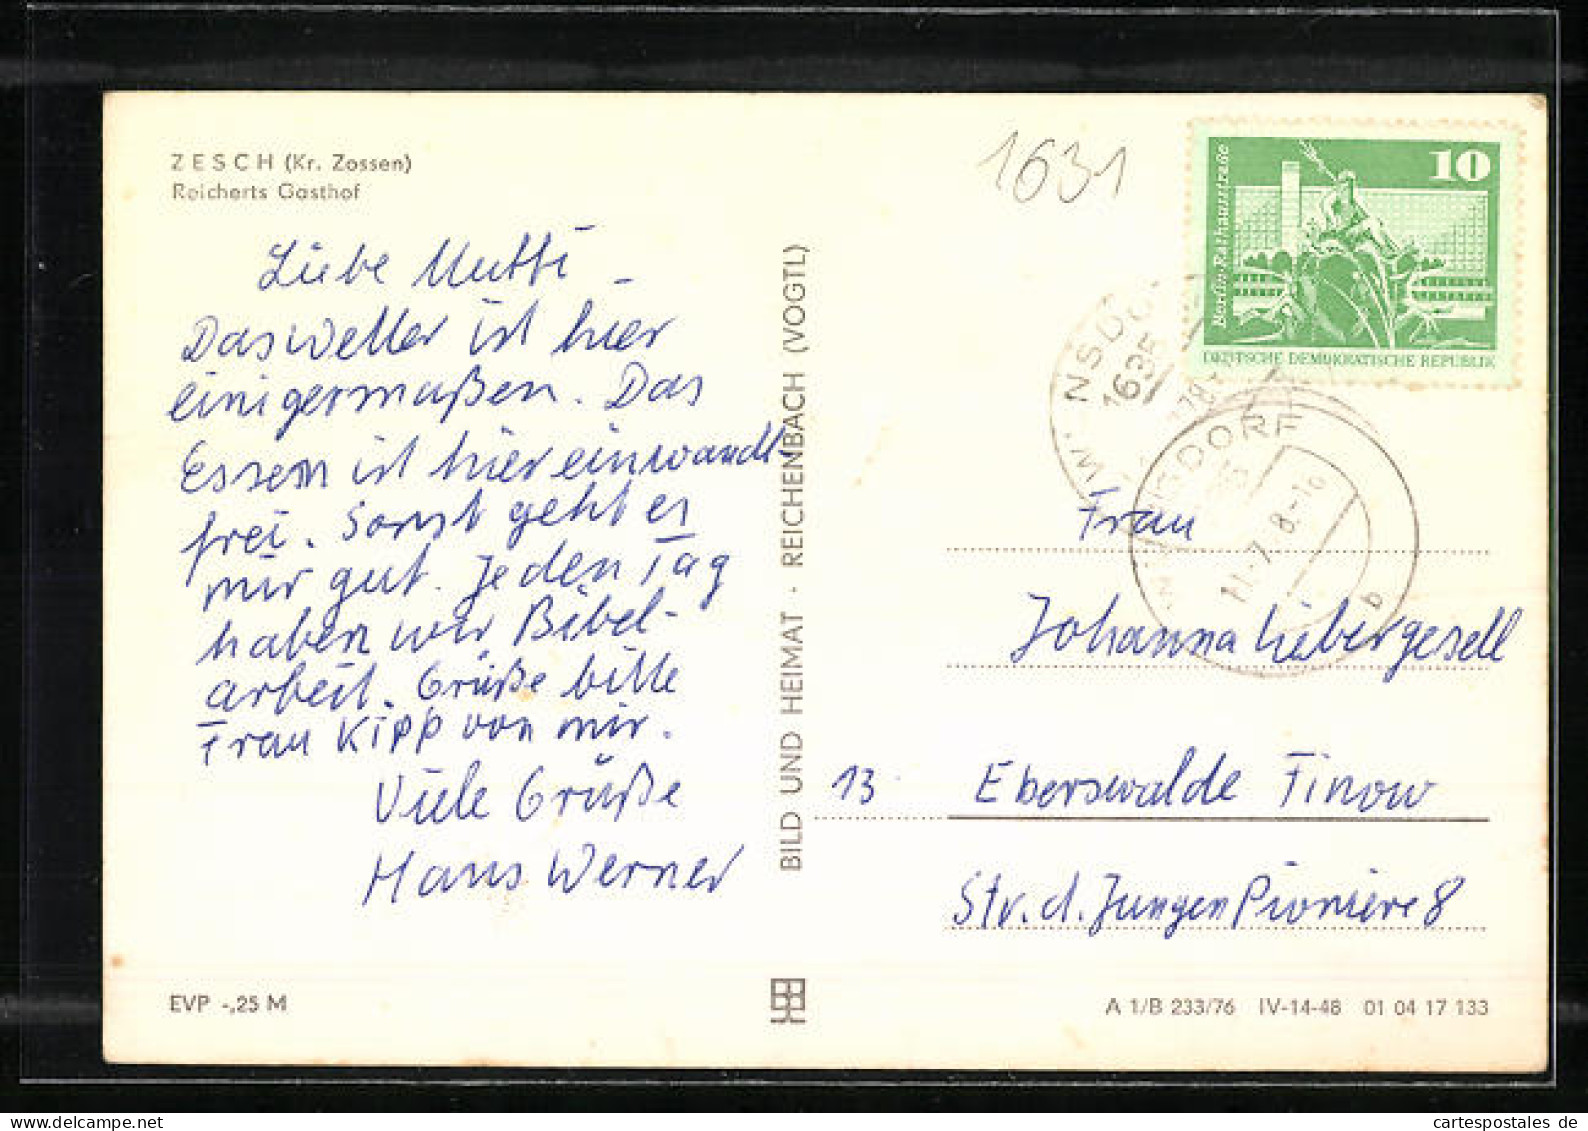 ZESCH (Kr. Zossen)
Reicherts Gasthof
Liebe Mutti –
Das Wetter ist hier
einigermaßen. Das
Essen ist hier einwandt-
frei. Sonst geht es
mir gut. Jeden Tag
haben wir Bibel-
arbeit. Grüße bitte
Frau Kipp von mir.
Viele Grüße
Hans Werner
EVP -,25 M
BILD UND HEIMAT · REICHENBACH (VOGTL)
1631
10
Berlin-Rathausstraße
DEUTSCHE DEMOKRATISCHE REPUBLIK
NSDO
1635
NSDORF
11.-7. 8-16
b
Frau
Johanna Liebergesell
13 Eberswalde Finow
Str. d. Jungen Pioniere 8
A 1/B 233/76 IV-14-48 01 04 17 133
cartespostales de